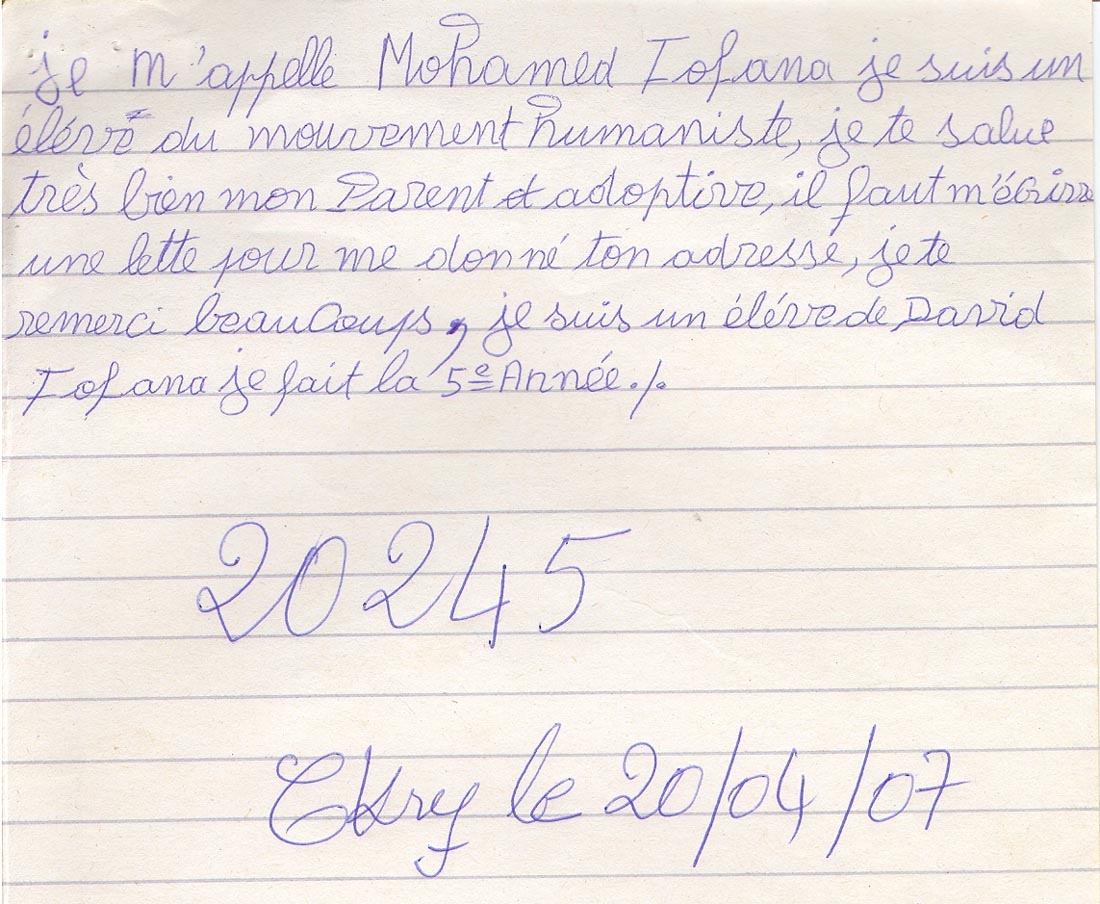 je m'appelle Mohamed Fofana je suis un
élève du mouvement humaniste, je te salue
très bien mon Parent et adoptive, il faut m'écrire
une lette pour me donné ton adresse, je te
remerci beauCoups, je suis un élève de David
Fofana je fait la 5e Année./.
20245
CKry le 20/04/07